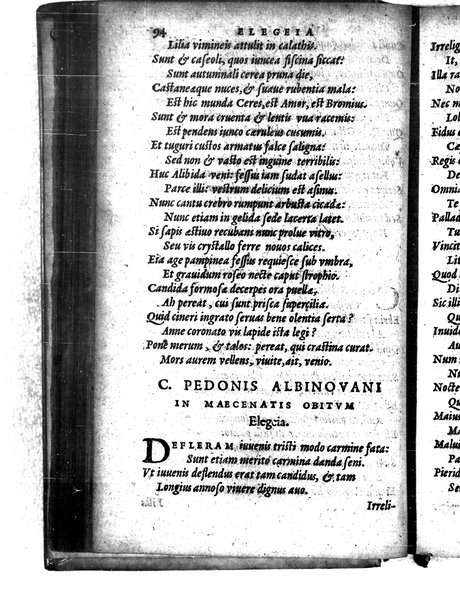 94 ELEGEIA
Lilia vimineis attulit in calathis.
Sunt & caseoli, quos iuncea fiscina siccat:
Sunt autumnali cerea pruna die,
Castaneaque nuces, & suaue rubentia mala:
Est hic munda Ceres, est Amor, est Bromius.
Sunt & mora cruenta & lentis vua racemis:
Est pendens iunco cæruleus cucumis.
Et tuguri custos armatus falce saligna:
Sed non & vasto est inguine terribilis:
Huc Alibida veni: fessus iam sudat asellus:
Parce illi: vestrum delicium est asinus.
Nunc cantu crebro rumpunt arbusta cicadæ:
Nunc etiam in gelida sede lacerta latet.
Si sapis æstiuo recubans nunc prolue vitro,
Seu vis crystallo ferre nouos calices.
Eia age pampinea fessus requiesce sub vmbra,
Et grauidum roseo necte caput strophio.
Candida formosæ decerpes ora puellæ,
Ah pereat, cui sunt prisca supercilia.
Quid cineri ingrato seruas bene olentia serta?
Anne coronato vis lapide ista legi?
Pone merum, & talos: pereat, qui crastina curat.
Mors aurem vellens, viuite, ait, venio.
C. PEDONIS ALBINOVANI
IN MAECENATIS OBITVM
Elegeia.
DEFLERAM iuuenis tristi modo carmine fata:
Sunt etiam merito carmina danda seni.
Vt iuuenis deflendus erat tam candidus, & tam
Longius annoso viuere dignus auo.
Irreli-
Irrelig
It,
Illa ra
Nec m
Lol
Fidus
Ca
Regis
De
Omnia
Te
Pallad
Tu
Vincit
Lit
Quod
Di
Sic illi
Qu
Inuida
Au
Num
Nu
Nocte
Qu
Maius
Ma
Malui
Pa
Pierid
Se